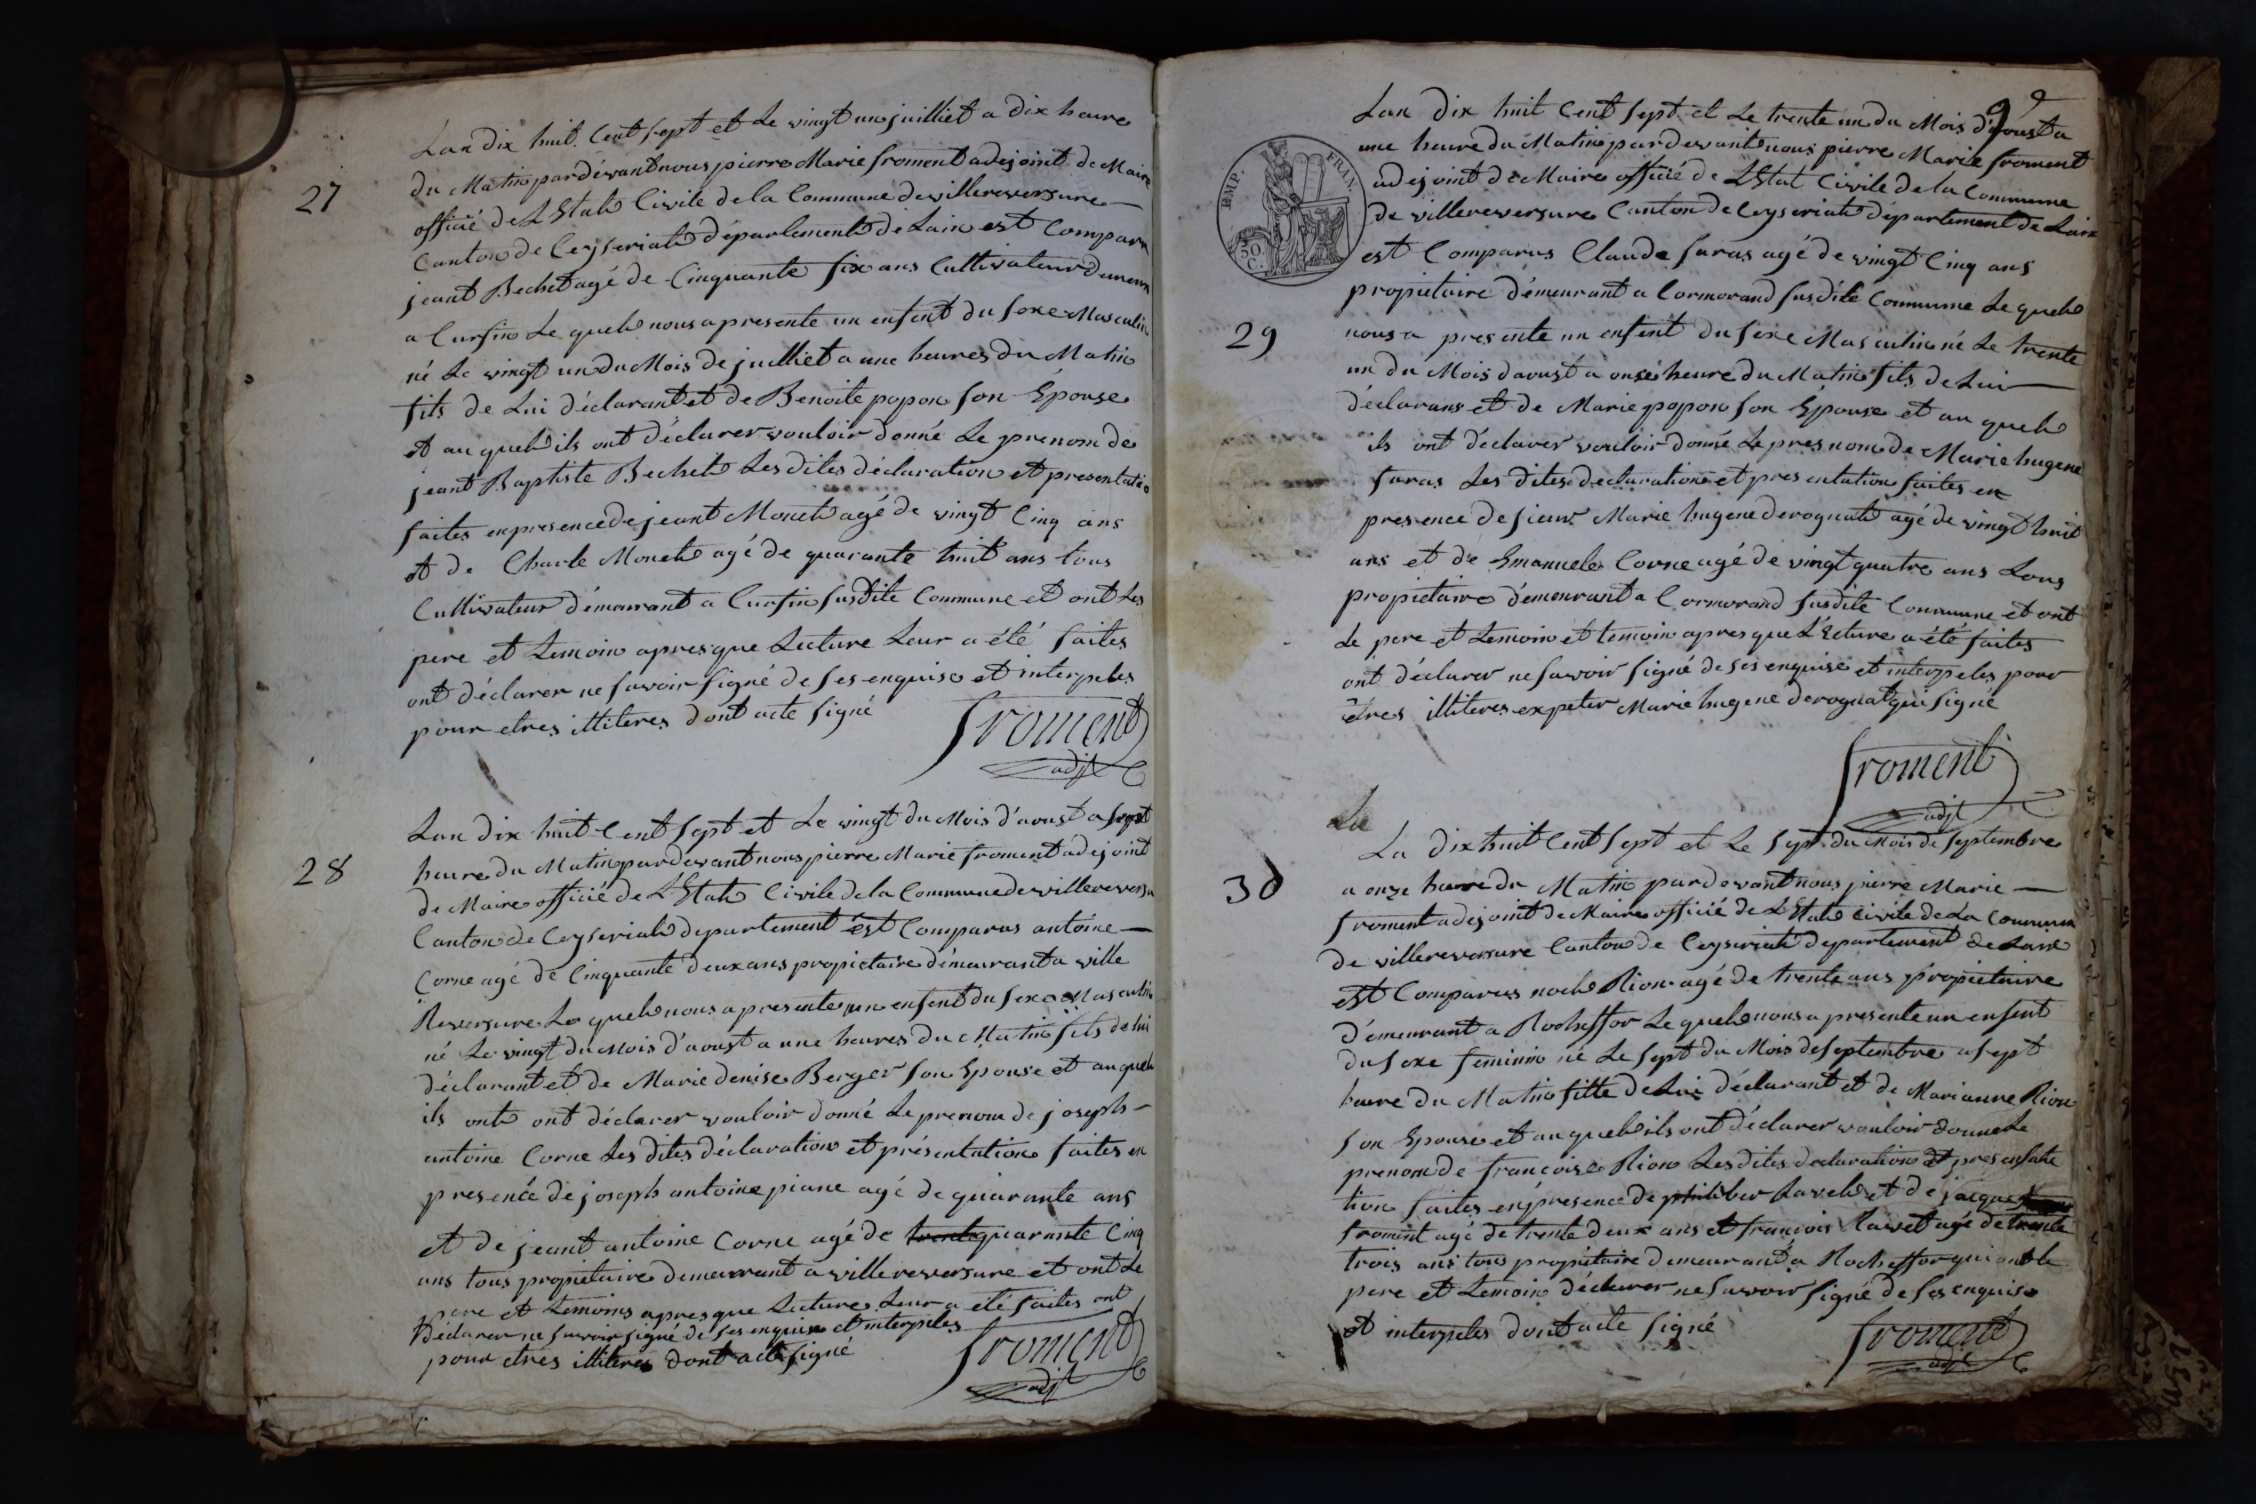 27
Lan dix huit Cent sept et Le vingt un juilliet a dix heure
du Matin pardevant nous pierre Marie froment adejoint de Maire
officié de LEstat Civile de la Commune de villereversure
Canton de Ceyseriat département de Lain est Comparu
jeant Bechet agé de Cinquante six ans Cultivateur demeurant
a Cursin Le quel nous a presente un enfent du sexe Masculin
né Le vingt un du Mois de juilliet a une heures du Matin
fils de Lui déclarant et de Benoite popon son Epouse
et au quel ils ont déclarer vouloir donné Le prenom de
jeant Baptiste Bechet Les dites déclaration et presentatio
faites en presence de jeant Monet agé de vingt Cinq ans
et de Charle Monet agé de quarante huit ans tous
Cultivateur démourant a Cursin susdite Commune et ont Les
pere et temoin apres que Lecture Leur a été faites
ont déclarer ne savoir signé de ses enquise et interpeles
pour etres illiteres dont acte signé
froment
adjt
28
Lan dix huit Cent sept et Le vingt du Mois d'aoust a sept
heure du Matin pardevant nous pierre Marie froment adejoint
de Maire officié de LEstat Civile de la Commune de villereversu
Canton de Ceyseriat departement est Comparus antoine
Corne agé de Cinquante deux ans propietaire démeurant a ville
Reversure Le quel nous a presente un enfent du sexe Masculin
né Le vingt du Mois d'aoust a une heures du Matin fils de lui
déclarant et de Marie denise Berger son Epouse et au quel
ils ont ont déclarer vouloir donné Le prenom de joseph
antoine Corne Les dites déclaration et présentation faites en
presencé de joseph antoine piane agé de quarante ans
et de jeant antoine Corne agé de trente quarante Cinq
ans tous propietaire demeurant a villereversure et ont Le
pere et temoins apres que Lecture Leur a été faites ont
Déclarer ne savoir signé de ses enquise et interpeles
pour etres illiteres dont acte signé
froment
adjt
9
9
EMP. FRAN.
50 C.
29
Lan dix huit Cent sept et Le trente un du Mois d'aoust a
une heure du Matin pardevant nous pierre Marie froment
adejoint de Maire officié de LEstat Civile de la Commune
de villereversure Canton de Ceyseriat département de Lain
est Comparus Claude faras agé de vingt Cinq ans
propietaire démeurant a Cormorand susdite Commune Le quel
nous a presente un enfent du sexe Masculin né Le trente
un du Mois daoust a onse heure du Matin fils de Lui
déclarans et de Marie popon son Epouse et au quel
ils ont déclarer vouloir donné Le presnom de Marie hugene
faras Les dites declaration et presentation faites en
presence de sieur Marie hugene derognat agé de vingt huit
ans et de Emanuele Corne agé de vingt quatre ans tous
propietaire démeurant a Cormorand susdite Commune et ont
Le pere et temoin et temoin apres que L'Ecture a été faites
ont déclarer ne savoir signé de ses enquise et interpeles pour
êtres illiteres expeter Marie hugene derognat qui signé
froment
adjt
La
30
La dix huit Cent sept et Le sept du Mois de septembre
a onze heure du Matin pardevant nous pierre Marie
froment adejoint de Maire officié de LEstat Civile de La Commun
de villereversure Canton de Ceyseriat departement de Lain
est Comparus noel Rion agé de trente ans propietaire
démeurant a Rocheffor Le quel nous a presente un enfent
du sexe feminin né Le sept du Mois de septembre a sept
heure du Matin fille de Lui déclarant et de Marianne Rion
son Epouse et au quel ils ont déclarer vouloir donne Le
prenom de francoise Rion Les dites declaration et presentate
tion faites en presence de philiber Lavel et de jacque
froment agé de trente deux ans et francois Ravet agé de trente
trois ans tous propietaire demeurand a Rocheffor qui ont le
pere et temoin déclarer ne savoir signé de ses enquise
et interpeles dont acte signé
froment
adjt